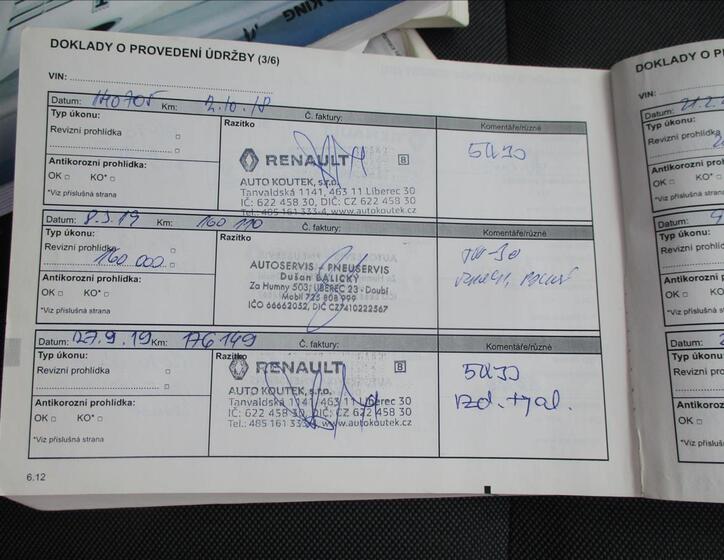 DOKLADY O PROVEDENÍ ÚDRŽBY (3/6)
VIN:
Datum: 140705 Km: 2.10.18 Č. faktury: Komentáře/různé
Typ úkonu: Razítko
Revizní prohlídka
RENAULT B
5W30
Antikorozní prohlídka:
OK KO*
*Viz příslušná strana
AUTO KOUTEK, s.r.o.
Tanvaldská 1141, 463 11 Liberec 30
IČ: 622 458 30, DIČ: CZ 622 458 30
Tel.: 485 161 333-4, www.autokoutek.cz
Datum: 8.3.19 Km: 160 110 Č. faktury: Komentáře/různé
Typ úkonu: Razítko
Revizní prohlídka
160 000
AUTOSERVIS - PNEUSERVIS
Dušan BALICKÝ
Za Humny 503, LIBEREC 23 - Doubí
Mobil 725 808 999
IČO 66662052, DIČ CZ7410222567
Antikorozní prohlídka:
OK KO*
*Viz příslušná strana
Datum: 27.9.19 Km: 176149 Č. faktury: Komentáře/různé
Typ úkonu: Razítko
Revizní prohlídka
RENAULT B
5W30
vzd. + pal.
Antikorozní prohlídka:
OK KO*
*Viz příslušná strana
AUTO KOUTEK, s.r.o.
Tanvaldská 1141, 463 11 Liberec 30
IČ: 622 458 30, DIČ: CZ 622 458 30
Tel.: 485 161 333-4, www.autokoutek.cz
6.12
DOKLADY O
VIN:
Datum: 21.2.
Typ úkonu:
Revizní prohlídka
Antikorozní prohlí
OK KO*
*Viz příslušná stran
Datum:
Typ úkonu:
Revizní prohlí
Antikorozní pr
OK KO
*Viz příslušná s
Datum:
Typ úkonu:
Revizní proh
Antikorozní
OK
*Viz příslušná